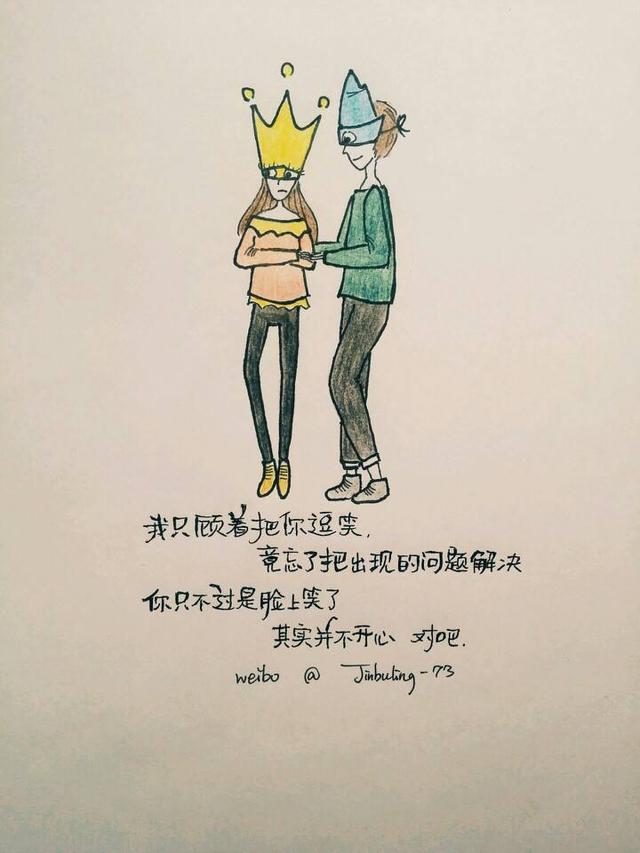 我只顾着把你逗笑,
竟忘了把出现的问题解决
你只不过是脸上笑了
其实并不开心 对吧.
weibo @ Jinbuling-73